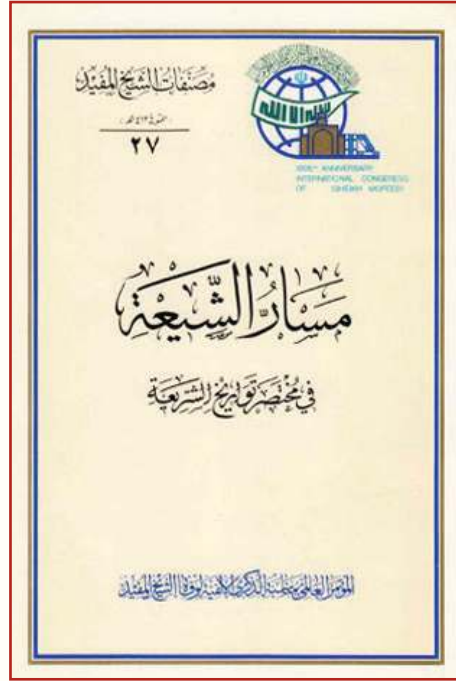 مصنفات الشيخ المفيد
المتوفى ٤١٣ هـ
٢٧
لا اله الا الله
1000th ANNIVERSARY
INTERNATIONAL CONGRESS
OF SHEIKH MOFEED
مَسَارُّ الشِّيعَةِ
في مختصر تواريخ الشريعة
المؤتمر العالمي بمناسبة الذكرى الألفية لوفاة الشيخ المفيد